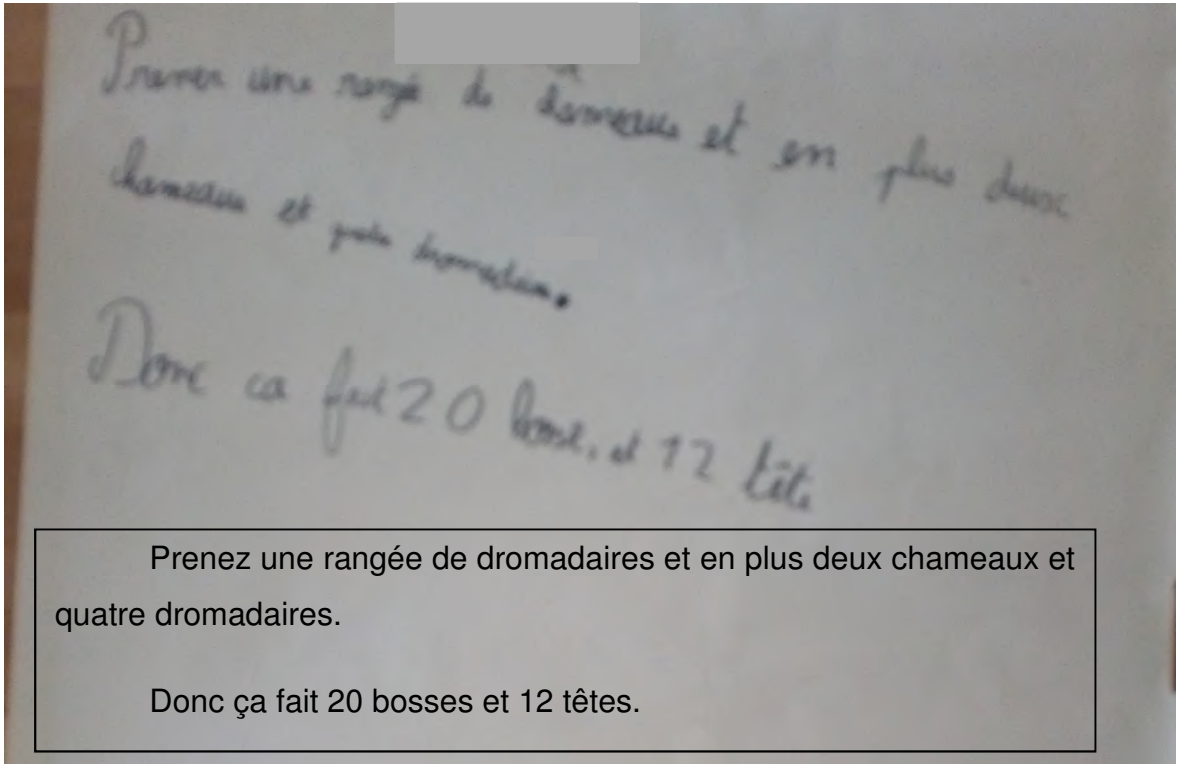 Prener une rangé de chameaus et en plus deux
chameaus et quatre dromadaire.
Donc ca fait 20 bosse, et 12 tête
Prenez une rangée de dromadaires et en plus deux chameaux et
quatre dromadaires.
Donc ça fait 20 bosses et 12 têtes.